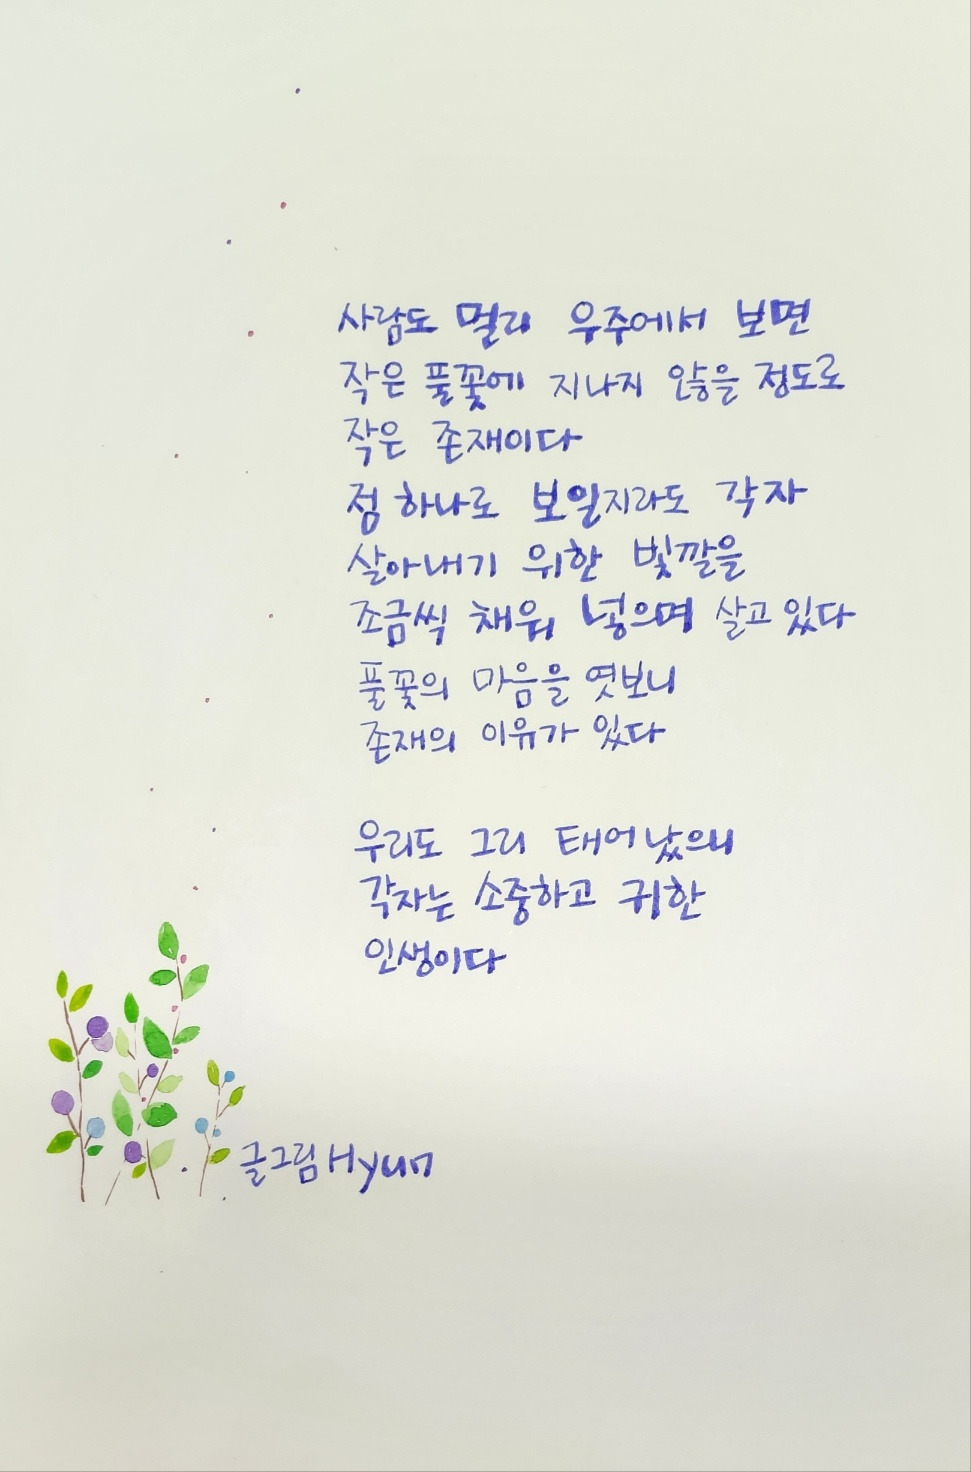 사람도 멀리 우주에서 보면
작은 풀꽃에 지나지 않을 정도로
작은 존재이다
점 하나로 보일지라도 각자
살아내기 위한 빛깔을
조금씩 채워 넣으며 살고 있다
풀꽃의 마음을 엿보니
존재의 이유가 있다
우리도 그리 태어났으니
각자는 소중하고 귀한
인생이다
글그림 Hyun